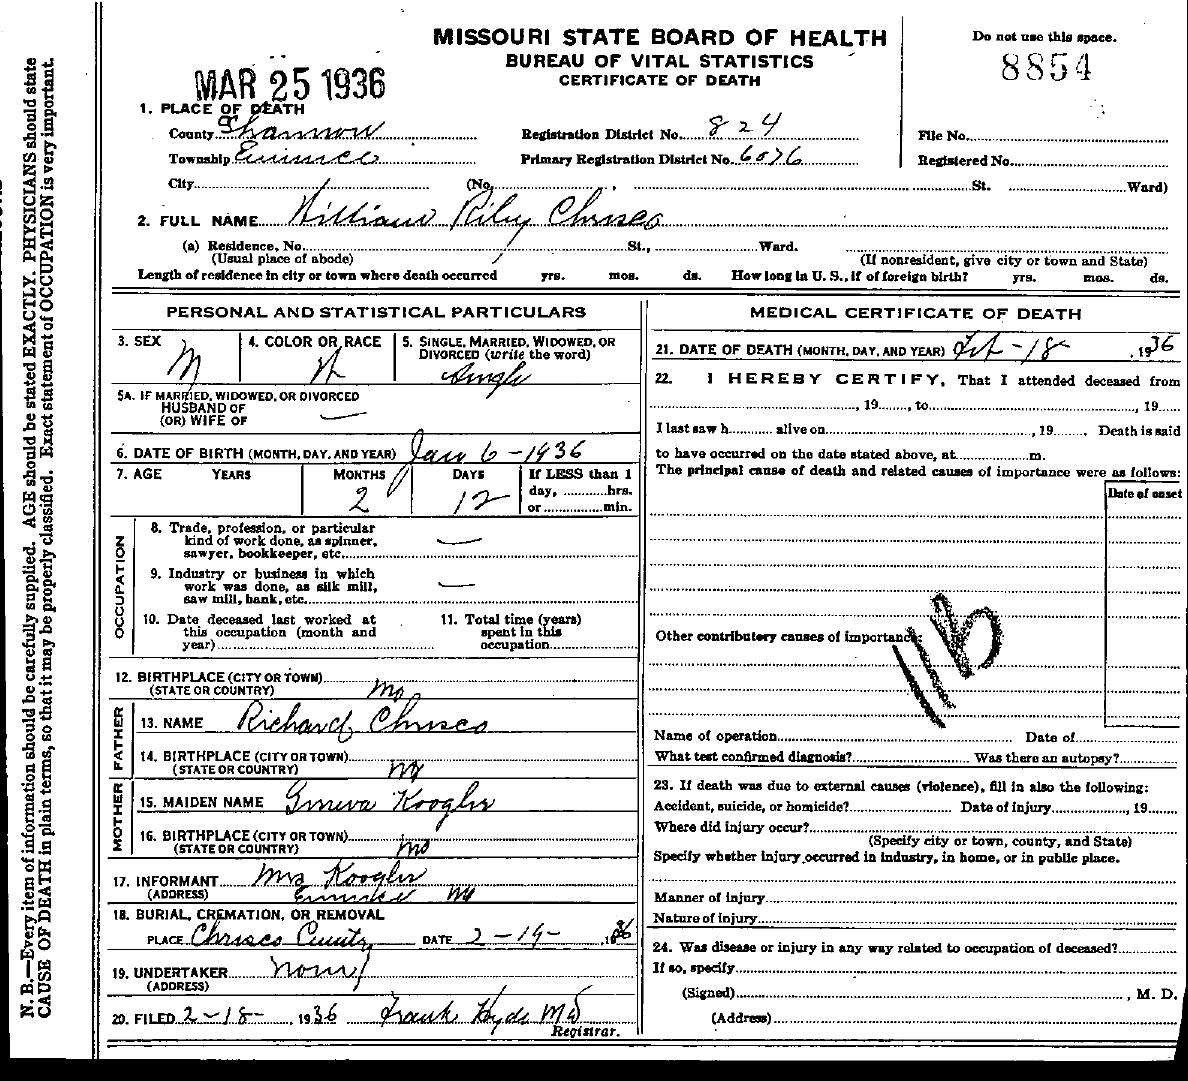 MISSOURI STATE BOARD OF HEALTH
BUREAU OF VITAL STATISTICS
CERTIFICATE OF DEATH
Do not use this space.
8854
MAR 25 1936
1. PLACE OF DEATH
County Shannon Registration District No. 824 File No.
Township Eminence Primary Registration District No. 6076 Registered No.
City (No. , St. Ward)
2. FULL NAME William Riley Chrisco
(a) Residence, No. St., Ward.
(Usual place of abode) (If nonresident, give city or town and State)
Length of residence in city or town where death occurred yrs. mos. ds. How long in U. S., if of foreign birth? yrs. mos. ds.
PERSONAL AND STATISTICAL PARTICULARS
3. SEX 4. COLOR OR RACE 5. SINGLE, MARRIED, WIDOWED, OR
DIVORCED (write the word)
M W Single
5A. IF MARRIED, WIDOWED, OR DIVORCED
HUSBAND OF
(OR) WIFE OF —
6. DATE OF BIRTH (MONTH, DAY, AND YEAR) Jan 6 - 1936
7. AGE YEARS MONTHS DAYS If LESS than 1
day, hrs.
or min.
2 12
OCCUPATION
8. Trade, profession, or particular
kind of work done, as spinner,
sawyer, bookkeeper, etc. —
9. Industry or business in which
work was done, as silk mill,
saw mill, bank, etc. —
10. Date deceased last worked at
this occupation (month and
year)
11. Total time (years)
spent in this
occupation
12. BIRTHPLACE (CITY OR TOWN)
(STATE OR COUNTRY) Mo
FATHER
13. NAME Richard Chrisco
14. BIRTHPLACE (CITY OR TOWN)
(STATE OR COUNTRY) Mo
MOTHER
15. MAIDEN NAME Geneva Koogler
16. BIRTHPLACE (CITY OR TOWN)
(STATE OR COUNTRY) Mo
17. INFORMANT Mrs Koogler
(ADDRESS) Eminence Mo
18. BURIAL, CREMATION, OR REMOVAL
PLACE Chrisco DATE 2-19- 1936
19. UNDERTAKER none
(ADDRESS)
20. FILED 2-18- 1936 Frank Hyde MD
Registrar.
MEDICAL CERTIFICATE OF DEATH
21. DATE OF DEATH (MONTH, DAY, AND YEAR) Feb - 18 , 1936
22. I HEREBY CERTIFY, That I attended deceased from
, 19 , to , 19
I last saw h alive on , 19 Death is said
to have occurred on the date stated above, at m.
The principal cause of death and related causes of importance were as follows:
Date of onset
Other contributory causes of importance:
11B
Name of operation Date of
What test confirmed diagnosis? Was there an autopsy?
23. If death was due to external causes (violence), fill in also the following:
Accident, suicide, or homicide? Date of injury , 19
Where did injury occur?
(Specify city or town, county, and State)
Specify whether injury occurred in industry, in home, or in public place.
Manner of injury
Nature of injury
24. Was disease or injury in any way related to occupation of deceased?
If so, specify
(Signed) , M. D.
(Address)
N. B.—Every item of information should be carefully supplied. AGE should be stated EXACTLY. PHYSICIANS should state
CAUSE OF DEATH in plain terms, so that it may be properly classified. Exact statement of OCCUPATION is very important.